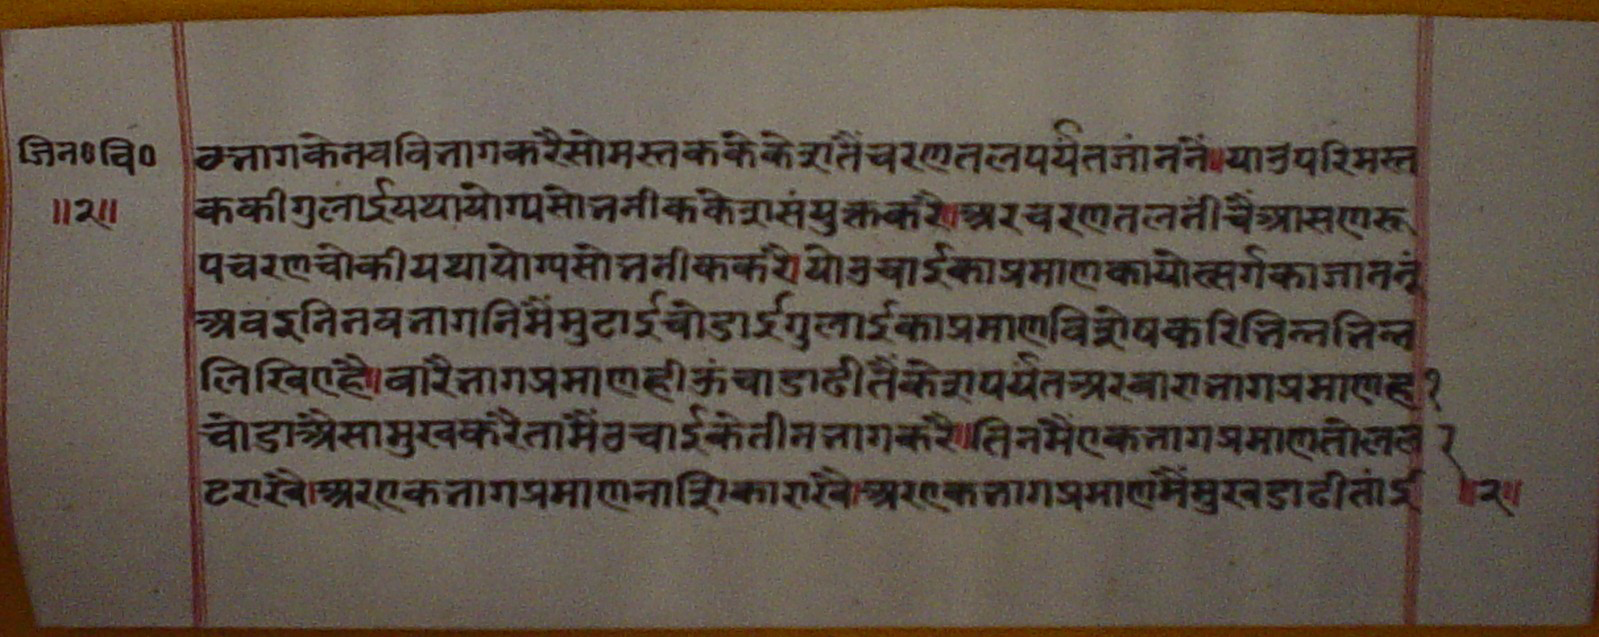 जिन०वि०
॥२॥
ठभागकेनवविभागकरैसोमस्तककेकेशतैंचरणतलपर्यंतजांननें॥याउपरिमस्त
ककीगुलाईयथायोग्यसोभनीककेशसंयुक्तकरै॥अरचरणतलनींचैंआसणरू
पचरणचोकीयथायोग्यसोभनीककरै॥योउचाईकाप्रमाणकायोत्सर्गकाजाननूं
अवइनिनवभागनिमैंमुटाईचोडाईगुलाईकाप्रमाणविशेषकरिभिन्नभिन्न
लिखिएहै॥बारैभागप्रमाणहीऊंचाडाढीतैंकेशपर्यंतअरबाराभागप्रमाणह १
चोडाअैसामुखकरैतामैंउचाईकेतीनभागकरै॥तिनमैंएकभागप्रमाणतोलल २
टराखै॥अरएकभागप्रमाणनाशिकाराखै॥अरएकभागप्रमाणमैंमुखडाढीतांई
॥२॥